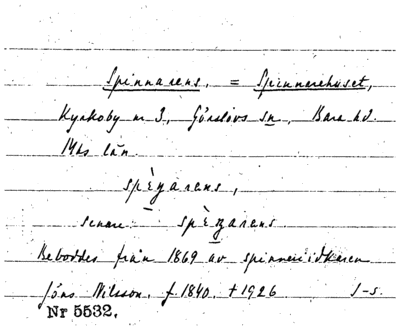 Spinnarens, = Spinnerehuset,
Kyrkoby nr 3, Görslövs sn, Bara hd.
Mhs län.
spɛ̀ɳarens,
senare spɛ̀ɳarens
Beboddes från 1869 av spinneriidkaren
Jöns Nilsson, f. 1840. † 1926 J-s.
Nr 5532.